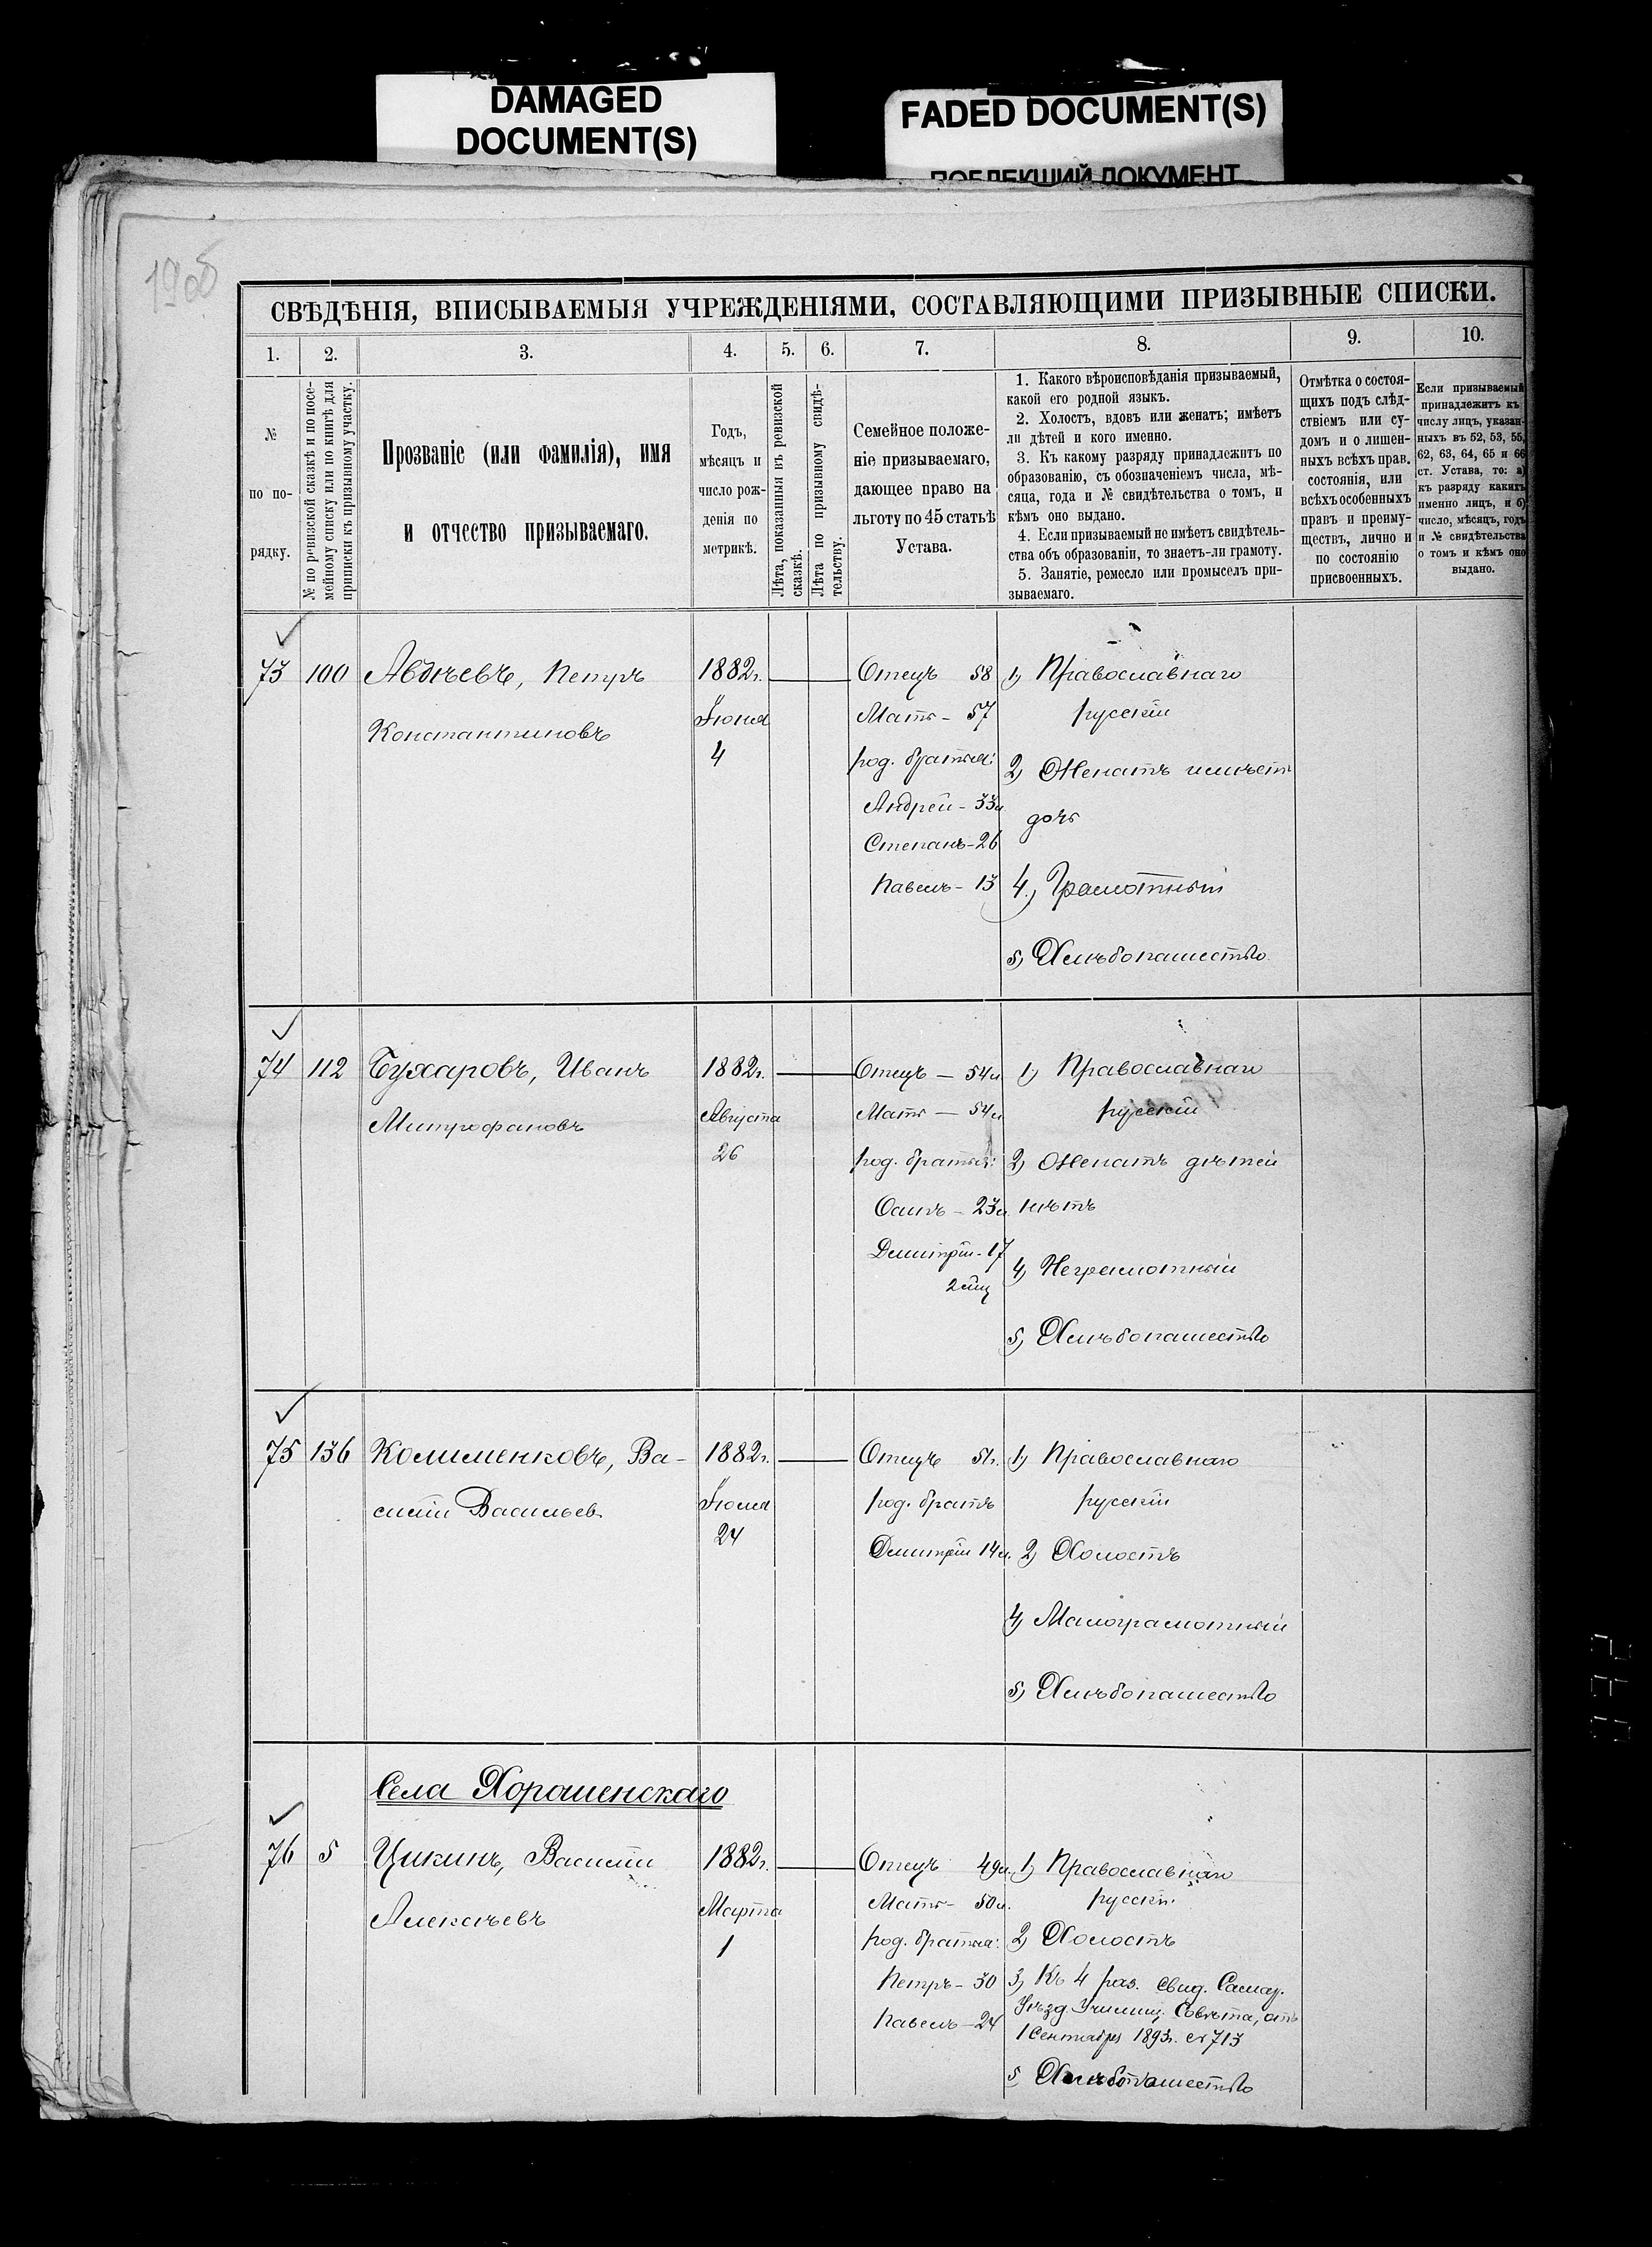 DAMAGED
DOCUMENT(S)
FADED DOCUMENT(S)
ПОБЛЕКШИЙ ДОКУМЕНТ
СВѢДѢНІЯ, ВПИСЫВАЕМЫЯ УЧРЕЖДЕНІЯМИ, СОСТАВЛЯЮЩИМИ ПРИЗЫВНЫЕ СПИСКИ.
1. 2. 3. 4. 5. 6. 7. 8. 9. 10.
№
по по-
рядку.
№ по ревизской сказкѣ и по посе-
мейному списку или по книгѣ для
приписки къ призывному участку.
Прозваніе (или фамилія), имя
и отчество призываемаго.
Годъ,
мѣсяцъ и
число рож-
денія по
метрикѣ.
Лѣта, показанныя въ ревизской
сказкѣ.
Лѣта по призывному свидѣ-
тельству.
Семейное положе-
ніе призываемаго,
дающее право на
льготу по 45 статьѣ
Устава.
1. Какого вѣроисповѣданія призываемый,
какой его родной языкъ.
2. Холостъ, вдовъ или женатъ; имѣетъ
ли дѣтей и кого именно.
3. Къ какому разряду принадлежитъ по
образованію, съ обозначеніемъ числа, мѣ-
сяца, года и № свидѣтельства о томъ, и
кѣмъ оно выдано.
4. Если призываемый не имѣетъ свидѣтель-
ства объ образованіи, то знаетъ-ли грамоту.
5. Занятіе, ремесло или промыселъ при-
зываемаго.
Отмѣтка о состоя-
щихъ подъ слѣд-
ствіемъ или су-
домъ и о лишен-
ныхъ всѣхъ прав.
состоянія, или
всѣхъ особенныхъ
правъ и преиму-
ществъ, лично и
по состоянію
присвоенныхъ.
Если призываемый
принадлежитъ къ
числу лицъ, указан-
ныхъ въ 52, 53, 55,
62, 63, 64, 65 и 66
ст. Устава, то: а)
къ разряду какихъ
именно лицъ, и б)
число, мѣсяцъ, годъ
и № свидѣтельства
о томъ и кѣмъ оно
выдано.
73 100 Авдѣевъ, Петръ
Константиновъ
1882г.
Іюня
4
Отецъ 58
Мать - 57
род. братья:
Андрей - 33л.
Степанъ - 26
Павелъ - 13
1) Православнаго
русскій
2) Женатъ имѣетъ
дочь
4) Грамотный
5) Хлѣбопашество
74 112 Бухаровъ, Иванъ
Митрофановъ
1882г.
Августа
26
Отецъ — 54л
Мать — 54л
род. братья:
Осипъ - 23л.
Димитрій - 17
1) Православнаго
русскій
2) Женатъ дѣтей
нѣтъ
4) Неграмотный
5) Хлѣбопашество
75 136 Колименковъ, Ва-
силій Васильев.
1882г.
Іюля
24
Отецъ 51г.
род. братъ
Димитрій 14л.
1) Православнаго
русскій
2) Холостъ
4) Малограмотный
5) Хлѣбопашество
Села Хорошенскаго
76 5 Цикинъ, Василій
Алексѣевъ
1882г.
Марта
1
Отецъ 49л.
Мать - 50л.
род. братья:
Петръ - 30
Павелъ - 24
1) Православнаго
русскій.
2) Холостъ
3) Къ 4 раз. свид. Самар.
Уѣзд. Училищ. Совѣта, отъ
1 Сентября 1893г. № 713
5 Хлѣбопашество